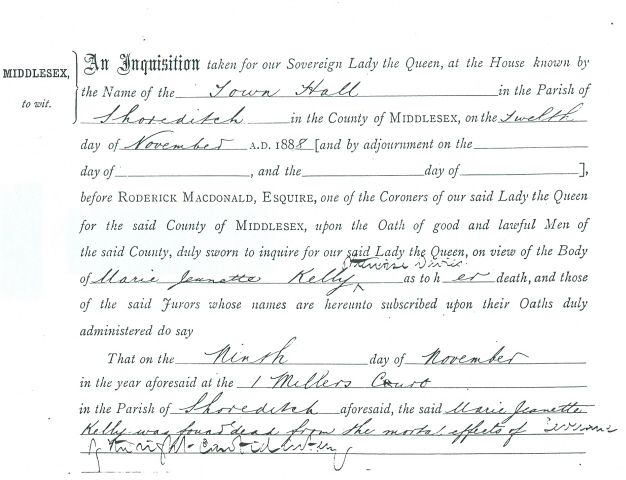 MIDDLESEX,
to wit.
An Inquisition taken for our Sovereign Lady the Queen, at the House known by
the Name of the Town Hall in the Parish of
Shoreditch in the County of MIDDLESEX, on the Twelth
day of November A.D. 1888 [and by adjournment on the
day of , and the day of ],
before RODERICK MACDONALD, ESQUIRE, one of the Coroners of our said Lady the Queen
for the said County of MIDDLESEX, upon the Oath of good and lawful Men of
the said County, duly sworn to inquire for our said Lady the Queen, on view of the Body
otherwise Davies
of Marie Jeanette Kelly as to h er death, and those
of the said Jurors whose names are hereunto subscribed upon their Oaths duly
administered do say
That on the Ninth day of November
in the year aforesaid at the 1 Millers Court
in the Parish of Shoreditch aforesaid, the said Marie Jeanette
Kelly was found dead from the mortal effects of severance
of the right carotid artery